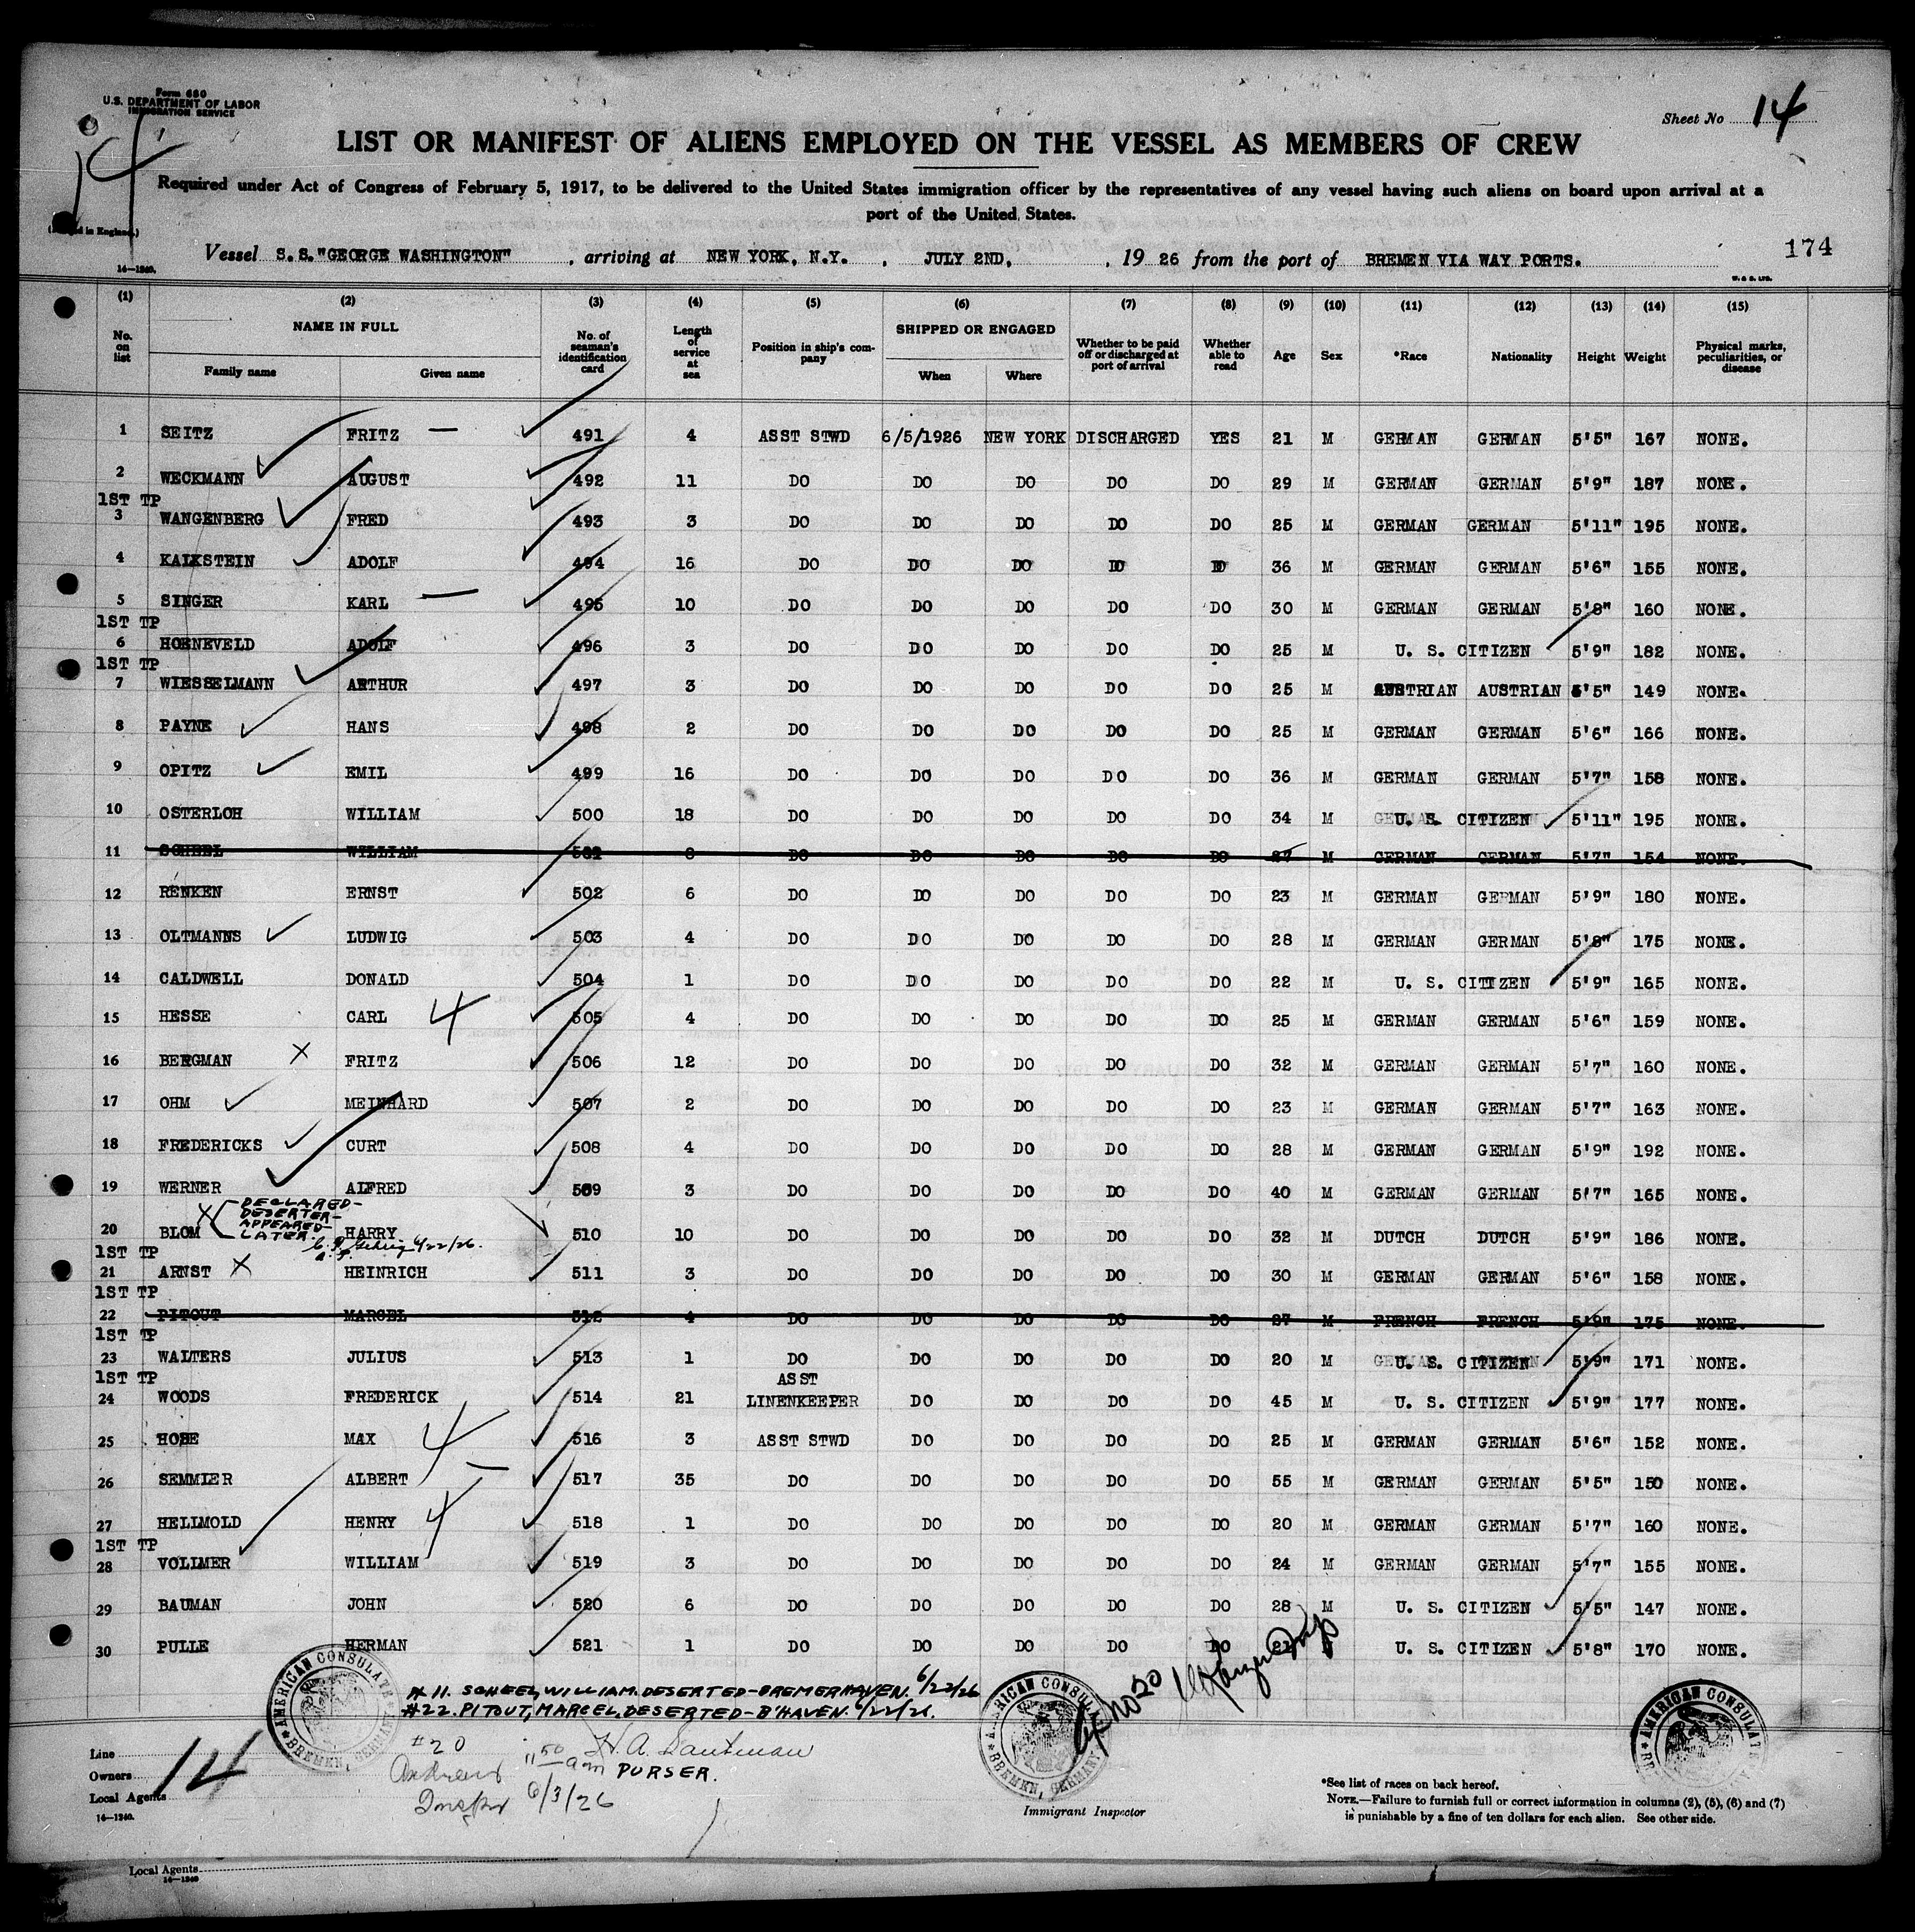 Form 680
U.S. DEPARTMENT OF LABOR
IMMIGRATION SERVICE
14
Sheet No 14
LIST OR MANIFEST OF ALIENS EMPLOYED ON THE VESSEL AS MEMBERS OF CREW
Required under Act of Congress of February 5, 1917, to be delivered to the United States immigration officer by the representatives of any vessel having such aliens on board upon arrival at a
port of the United States.
in England.)
Vessel S.S."GEORGE WASHINGTON" , arriving at NEW YORK, N.Y. , JULY 2ND, , 19 26 from the port of BREMEN VIA WAY PORTS. 174
14—1240.
(1) (2) (3) (4) (5) (6) (7) (8) (9) (10) (11) (12) (13) (14) (15)
No. on list NAME IN FULL Family name Given name No. of seaman's identification card Length of service at sea Position in ship's company SHIPPED OR ENGAGED When Where Whether to be paid off or discharged at port of arrival Whether able to read Age Sex *Race Nationality Height Weight Physical marks, peculiarities, or disease
1 SEITZ FRITZ — 491 4 ASST STWD 6/5/1926 NEW YORK DISCHARGED YES 21 M GERMAN GERMAN 5'5" 167 NONE.
2 WECKMANN AUGUST 492 11 DO DO DO DO DO 29 M GERMAN GERMAN 5'9" 187 NONE.
1ST TP
3 WANGENBERG FRED 493 3 DO DO DO DO DO 25 M GERMAN GERMAN 5'11" 195 NONE.
4 KALKSTEIN ADOLF 494 16 DO DO DO DO DO 36 M GERMAN GERMAN 5'6" 155 NONE.
5 SINGER KARL — 495 10 DO DO DO DO DO 30 M GERMAN GERMAN 5'8" 160 NONE.
1ST TP
6 HOENEVELD ADOLF 496 3 DO DO DO DO DO 25 M U. S. CITIZEN 5'9" 182 NONE.
1ST TP
7 WIESSELMANN ARTHUR 497 3 DO DO DO DO DO 25 M AUSTRIAN AUSTRIAN 5'5" 149 NONE.
8 PAYNE HANS 498 2 DO DO DO DO DO 25 M GERMAN GERMAN 5'6" 166 NONE.
9 OPITZ EMIL 499 16 DO DO DO DO DO 36 M GERMAN GERMAN 5'7" 158 NONE.
10 OSTERLOH WILLIAM 500 18 DO DO DO DO DO 34 M U. S. CITIZEN 5'11" 195 NONE.
11 SCHEEL WILLIAM 501 8 DO DO DO DO DO 27 M GERMAN GERMAN 5'7" 154 NONE.
12 RENKEN ERNST 502 6 DO DO DO DO DO 23 M GERMAN GERMAN 5'9" 180 NONE.
13 OLTMANNS LUDWIG 503 4 DO DO DO DO DO 28 M GERMAN GERMAN 5'8" 175 NONE.
14 CALDWELL DONALD 504 1 DO DO DO DO DO 22 M U. S. CITIZEN 5'9" 165 NONE.
15 HESSE CARL 4 505 4 DO DO DO DO DO 25 M GERMAN GERMAN 5'6" 159 NONE.
16 BERGMAN X FRITZ 506 12 DO DO DO DO DO 32 M GERMAN GERMAN 5'7" 160 NONE.
17 OHM MEINHARD 507 2 DO DO DO DO DO 23 M GERMAN GERMAN 5'7" 163 NONE.
18 FREDERICKS CURT 508 4 DO DO DO DO DO 28 M GERMAN GERMAN 5'9" 192 NONE.
19 WERNER ALFRED 509 3 DO DO DO DO DO 40 M GERMAN GERMAN 5'7" 165 NONE.
DECLARED—
DESERTER—
APPEARED—
LATER.
20 BLOM X HARRY 510 10 DO DO DO DO DO 32 M DUTCH DUTCH 5'9" 186 NONE.
6/22/26.
1ST TP
21 ARNST X HEINRICH 511 3 DO DO DO DO DO 30 M GERMAN GERMAN 5'6" 158 NONE.
1ST TP
22 PITOUT MARCEL 512 4 DO DO DO DO DO 27 M FRENCH FRENCH 5'9" 175 NONE.
1ST TP
23 WALTERS JULIUS 513 1 DO DO DO DO DO 20 M U. S. CITIZEN 5'9" 171 NONE.
1ST TP
24 WOODS FREDERICK 514 21 ASST LINENKEEPER DO DO DO DO 45 M U. S. CITIZEN 5'9" 177 NONE.
25 HOBE MAX 4 516 3 ASST STWD DO DO DO DO 25 M GERMAN GERMAN 5'6" 152 NONE.
26 SEMMIER ALBERT — 517 35 DO DO DO DO DO 55 M GERMAN GERMAN 5'5" 150 NONE.
27 HELLMOLD HENRY 4 518 1 DO DO DO DO DO 20 M GERMAN GERMAN 5'7" 160 NONE.
1ST TP
28 VOLLMER WILLIAM 519 3 DO DO DO DO DO 24 M GERMAN GERMAN 5'7" 155 NONE.
29 BAUMAN JOHN 520 6 DO DO DO DO DO 28 M U. S. CITIZEN 5'5" 147 NONE.
30 PULLE HERMAN 521 1 DO DO DO DO DO 21 U. S. CITIZEN 5'8" 170 NONE.
AMERICAN CONSULATE BREMEN, GERMANY
# 11. SCHEEL, WILLIAM. DESERTED—BREMERHAVEN. 6/22/26
#22. PITOUT, MARCEL, DESERTED—B'HAVEN. 6/22/26.
AMERICAN CONSULATE BREMEN, GERMANY
AMERICAN CONSULATE BREMEN, GERMANY
#20
11 50 am
PURSER.
6/3/26
Line
Owners 14
Local Agents
14—1240.
Immigrant Inspector
*See list of races on back hereof.
NOTE.—Failure to furnish full or correct information in columns (2), (5), (6) and (7)
is punishable by a fine of ten dollars for each alien. See other side.
Local Agents
14—1240